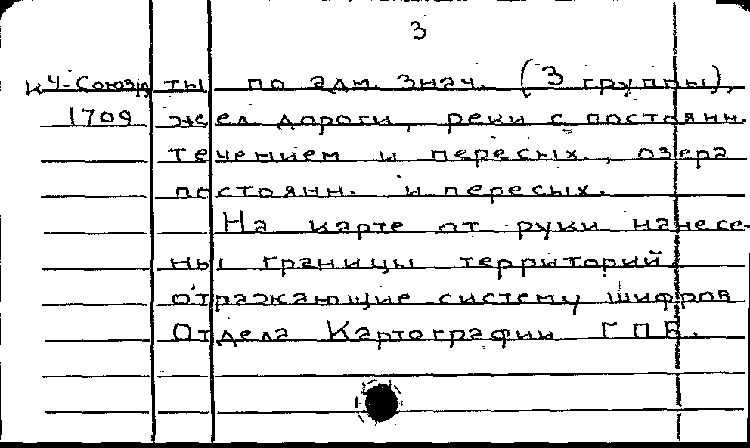 3
К 4-Союз/9 ты по адм. знач. (3 группы),
1709 жел. дороги, реки с постоянн.
течением и пересых., озера
постоянн. и пересых.
На карте от руки нанесе-
ны границы территорий,
отражающие систему шифров
Отдела Картографии ГПБ.